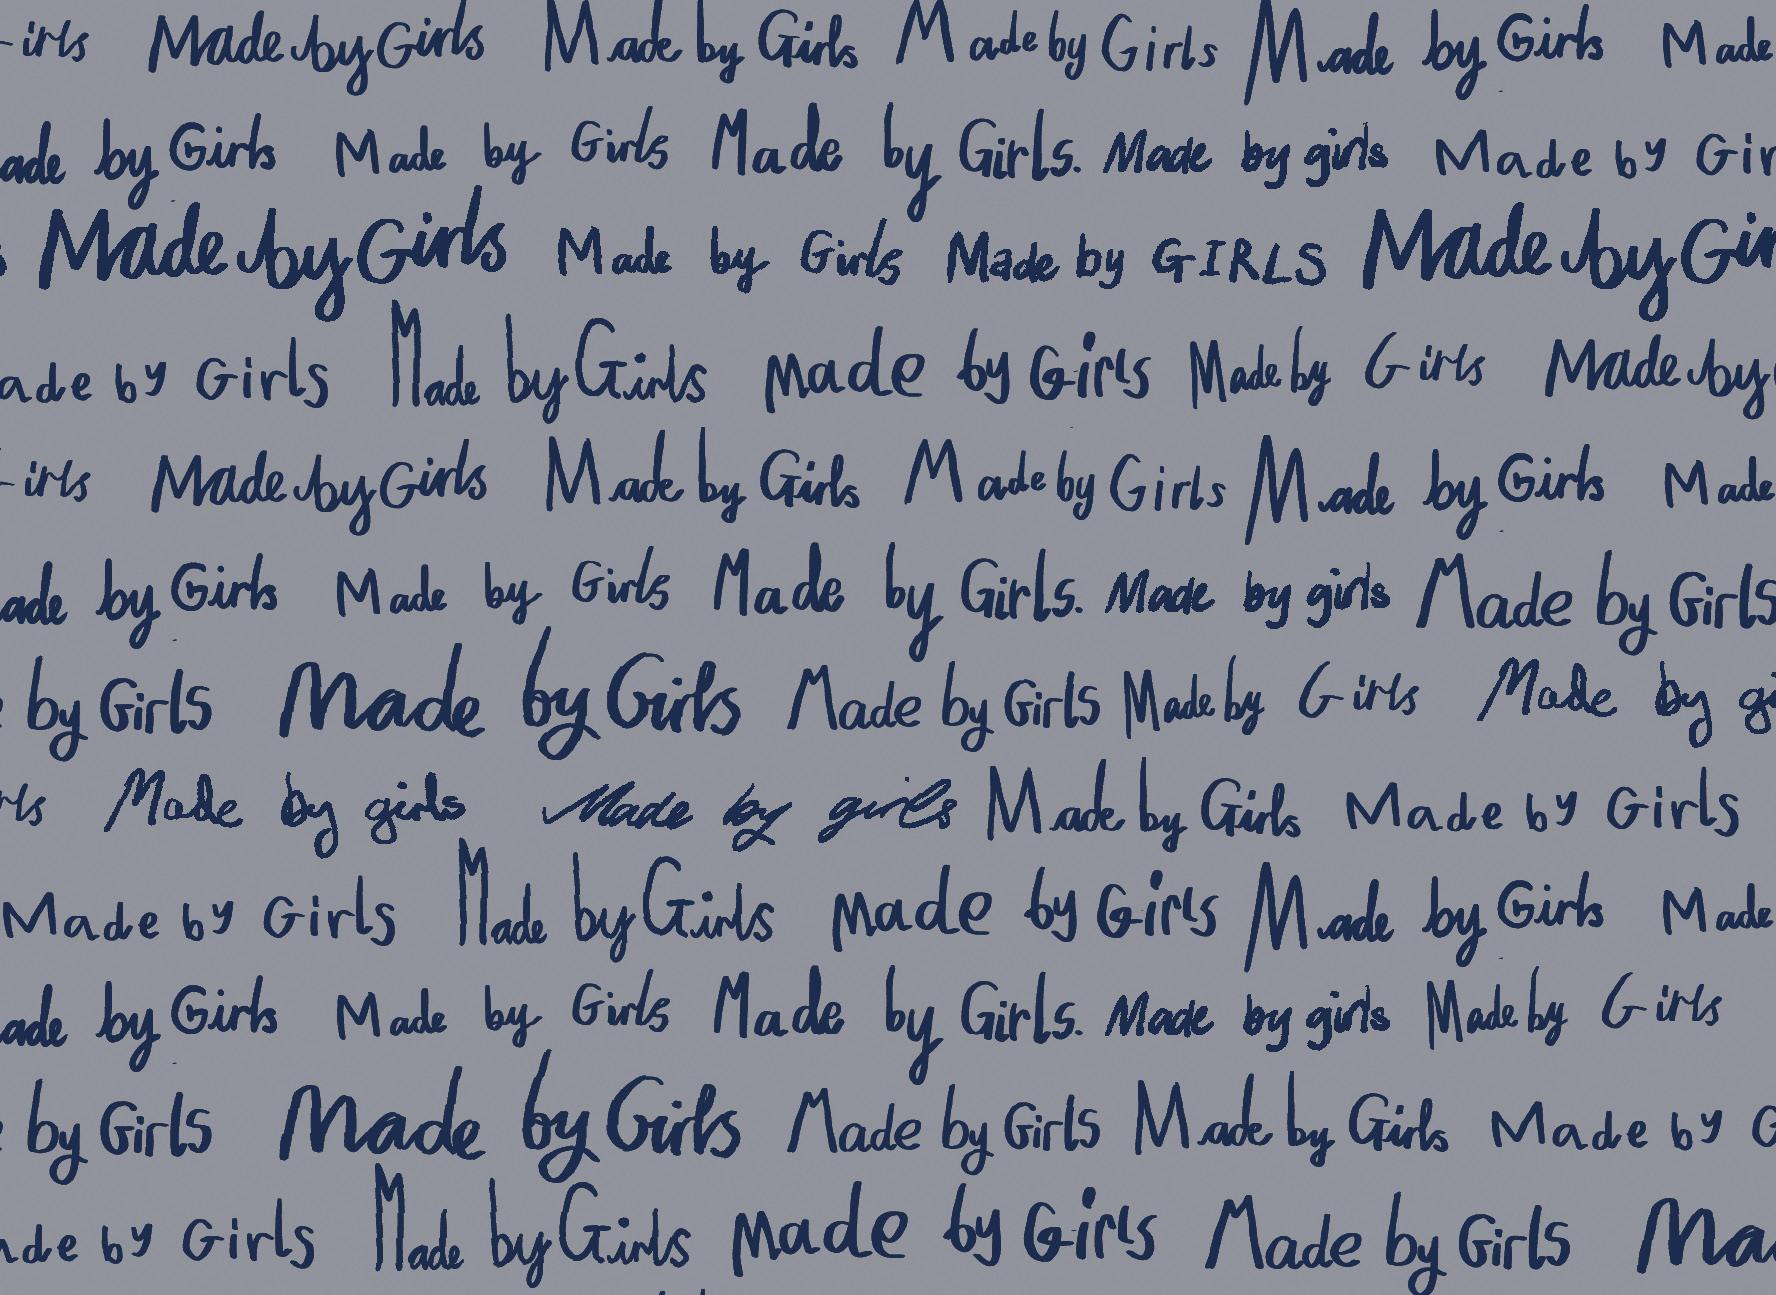 irls Made by Girls Made by Girls Made by Girls Made by Girls Made
ade by Girls Made by Girls Made by Girls. Made by girls Made by Gir
s Made by Girls Made by Girls Made by GIRLS Made by Gir
ade by Girls Made by Girls made by Girls Made by Girls Made by
irls Made by Girls Made by Girls Made by Girls Made by Girls Made
ade by Girls Made by Girls Made by Girls. Made by girls Made by Girls
e by Girls Made by Girls Made by Girls Made by Girls Made by gi
rls Made by girls Made by girls Made by Girls Made by Girls
Made by Girls Made by Girls made by Girls Made by Girls Made
ade by Girls Made by Girls Made by Girls. Made by girls Made by Girls
e by Girls Made by Girls Made by Girls Made by Girls Made by G
ade by Girls Made by Girls made by Girls Made by Girls Ma